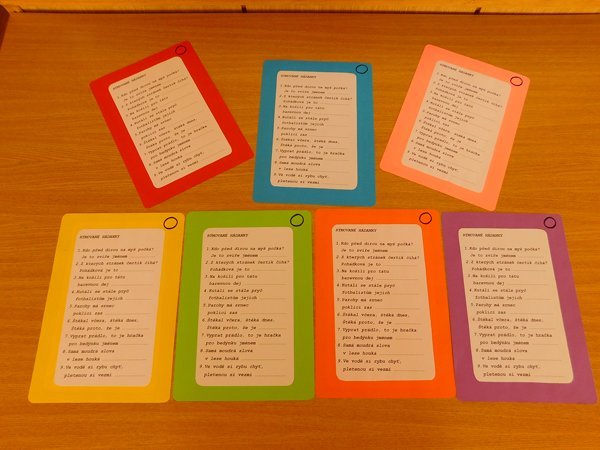 RÝMOVANÉ HÁDANKY
1.Kdo před dírou na myš počká?
Je to zvíře jménem
2.Z kterých stránek čertík číhá?
Pohádková je to
3.Na košili pro tátu
barevnou dej
4.Kutálí se stále pryč
fotbalistům jejich
5.Parohy má srnec
poklici zas
6.Štěkal včera, štěká dnes.
Štěká proto, že je
7.Vyprat prádlo, to je hračka
pro bedýnku jménem
8.Samá moudrá slova
v lese houká
9.Ve vodě si rybu chyť,
pletenou si vezmi
RÝMOVANÉ HÁDANKY
1.Kdo před dírou na myš počká?
Je to zvíře jménem
2.Z kterých stránek čertík číhá?
Pohádková je to
3.Na košili pro tátu
barevnou dej
4.Kutálí se stále pryč
fotbalistům jejich
5.Parohy má srnec
poklici zas
6.Štěkal včera, štěká dnes.
Štěká proto, že je
7.Vyprat prádlo, to je hračka
pro bedýnku jménem
8.Samá moudrá slova
v lese houká
9.Ve vodě si rybu chyť,
pletenou si vezmi
RÝMOVANÉ HÁDANKY
1.Kdo před dírou na myš počká?
Je to zvíře jménem
2.Z kterých stránek čertík číhá?
Pohádková je to
3.Na košili pro tátu
barevnou dej
4.Kutálí se stále pryč
fotbalistům jejich
5.Parohy má srnec
poklici zas
6.Štěkal včera, štěká dnes.
Štěká proto, že je
7.Vyprat prádlo, to je hračka
pro bedýnku jménem
8.Samá moudrá slova
v lese houká
9.Ve vodě si rybu chyť,
pletenou si vezmi
RÝMOVANÉ HÁDANKY
1.Kdo před dírou na myš počká?
Je to zvíře jménem
2.Z kterých stránek čertík číhá?
Pohádková je to
3.Na košili pro tátu
barevnou dej
4.Kutálí se stále pryč
fotbalistům jejich
5.Parohy má srnec
poklici zas
6.Štěkal včera, štěká dnes.
Štěká proto, že je
7.Vyprat prádlo, to je hračka
pro bedýnku jménem
8.Samá moudrá slova
v lese houká
9.Ve vodě si rybu chyť,
pletenou si vezmi
RÝMOVANÉ HÁDANKY
1.Kdo před dírou na myš počká?
Je to zvíře jménem
2.Z kterých stránek čertík číhá?
Pohádková je to
3.Na košili pro tátu
barevnou dej
4.Kutálí se stále pryč
fotbalistům jejich
5.Parohy má srnec
poklici zas
6.Štěkal včera, štěká dnes.
Štěká proto, že je
7.Vyprat prádlo, to je hračka
pro bedýnku jménem
8.Samá moudrá slova
v lese houká
9.Ve vodě si rybu chyť,
pletenou si vezmi
RÝMOVANÉ HÁDANKY
1.Kdo před dírou na myš počká?
Je to zvíře jménem
2.Z kterých stránek čertík číhá?
Pohádková je to
3.Na košili pro tátu
barevnou dej
4.Kutálí se stále pryč
fotbalistům jejich
5.Parohy má srnec
poklici zas
6.Štěkal včera, štěká dnes.
Štěká proto, že je
7.Vyprat prádlo, to je hračka
pro bedýnku jménem
8.Samá moudrá slova
v lese houká
9.Ve vodě si rybu chyť,
pletenou si vezmi
RÝMOVANÉ HÁDANKY
1.Kdo před dírou na myš počká?
Je to zvíře jménem
2.Z kterých stránek čertík číhá?
Pohádková je to
3.Na košili pro tátu
barevnou dej
4.Kutálí se stále pryč
fotbalistům jejich
5.Parohy má srnec
poklici zas
6.Štěkal včera, štěká dnes.
Štěká proto, že je
7.Vyprat prádlo, to je hračka
pro bedýnku jménem
8.Samá moudrá slova
v lese houká
9.Ve vodě si rybu chyť,
pletenou si vezmi